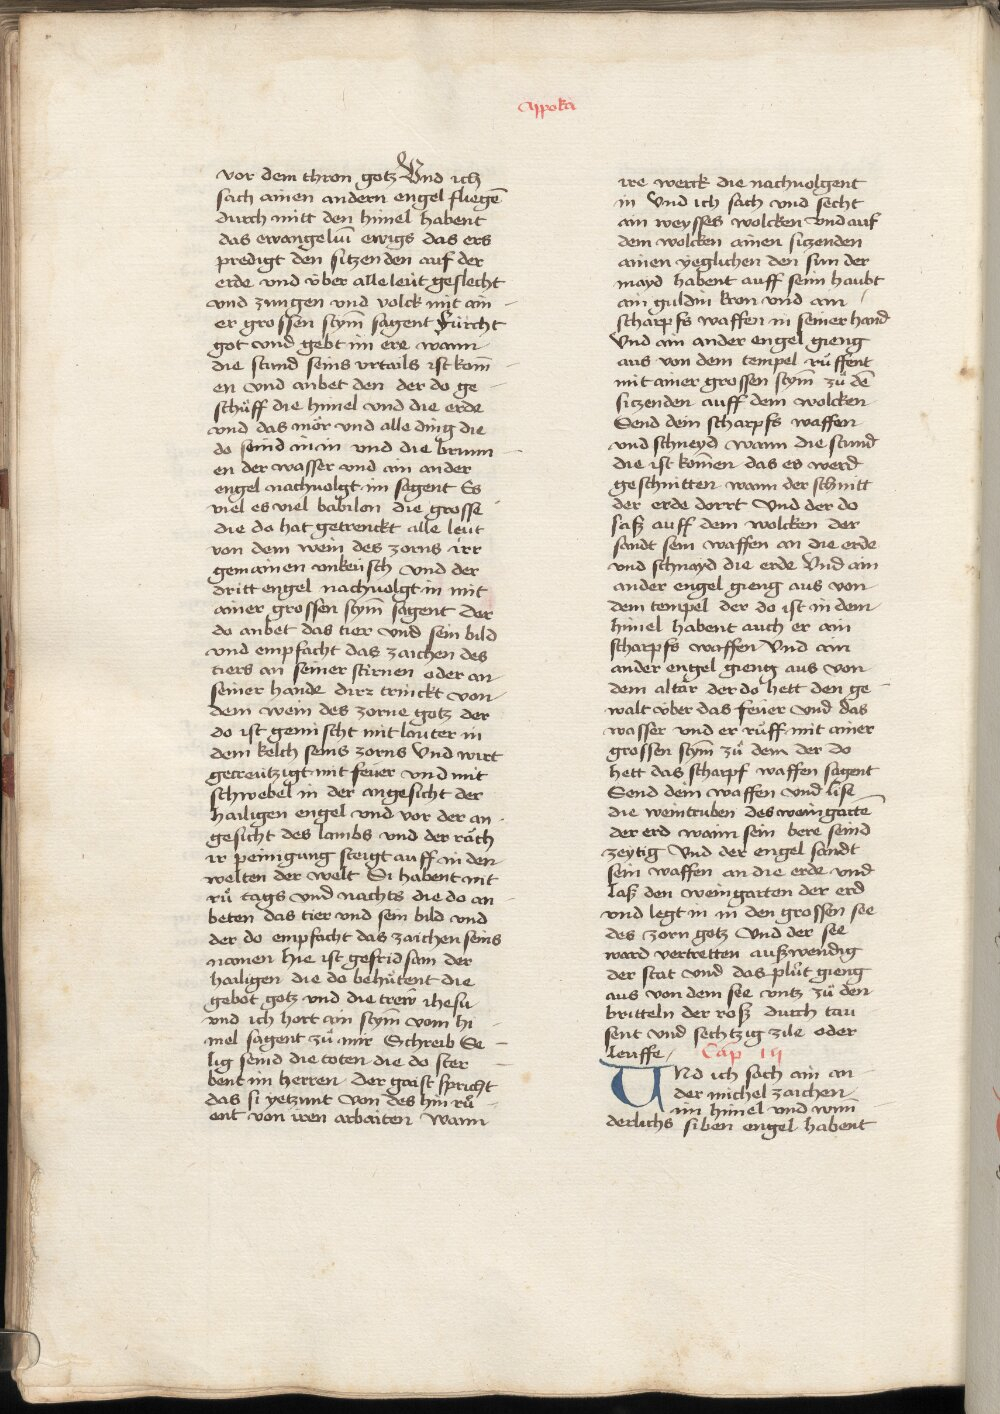 Appoka
vor dem thron gotz Vnd ich
sach ainen andern engel fliegē
durch mitt den himel habent
das ewangeliūi ewigs das ers
predigt den sitzenden auf der
erde vnd v̈ber alle leüt geslecht
vnd zungen vnd volck mit ain -
er grossen stym̄ sagent Fürcht
got vnd gebt im ere wann
die stund seins vrtails ist kom̄ -
en vnd anbet den der do ge -
schüff die himel vnd die erde
vnd das mör vnd alle ding die
do seind in in vnd die brunn -
en der wasser vnd ain ander
engel nachuolgt im sagent Es
viel es viel babilon die grosse
die do hat getrenckt alle leüt
von dem wein des zorns irr
gemainen vnkeüsch vnd der
dritt engel nachuolgt in mit
ainer grossen stym̄ sagent Der
do anbet das tier vnd sein bild
vnd empfacht das zaichen des
tiers an seiner stirnen oder an
seiner hande dirz trinckt von
dem wein des zorne gotz der
do ist gemischt mit lauter in
dem kelch seins zorns Vnd wirt
gecreützigt mit feüer vnd mit
schwebel in der angesicht der
hailigen engel vnd vor der an -
gesicht des lambs vnd der räch
ir peinigung steigt auff in den
welten der welt Si habent nit
rů tags vnd nachts die do an -
beten das tier vnd sein bild vnd
der do empfacht das zaichen seins
namen hie ist gefridsam der
hailigen die do behütent die
gebot gotz vnd die trew ihesu
vnd ich hort ain stym̄ vom hi -
mel sagent zů mir Schreib Se -
lig seind die toten die do ster -
bent im herren Der gaist spricht
das si yetzunt von des hin rů -
ent von iren arbaiten Wann
ire werck die nachuolgent
in Vnd ich sach vnd secht
ain weysses wolcken vnd auf
dem wolcken ainen sitzenden
ainen yeglichen den sun der
mayd habent auff seim haubt
ain guldin kron vnd ain
scharpfs waffen in seiner hand
Vnd ain ander engel gieng
aus von dem tempel rüffent
mit ainer grossen stym̄ zů dē
sitzenden auff dem wolcken
Send dein scharpfs waffen
vnd schneyd wann die stund
die ist kom̄en das es werd
geschnitten wann der schnitt
der erde dorrt Vnd der do
saß auff dem wolcken der
sandt sein waffen an die erde
vnd schnayd die erde Vnd ain
ander engel gieng aus von
dem tempel der do ist in dem
himel habent auch er ain
scharpfs waffen Vnd ain
ander engel gieng aus von
dem altar der do hett den ge -
walt v̈ber das feüer vnd das
wasser vnd er růff mit ainer
grossen stym̄ zů dem der do
hett das scharpf waffen sagent
Send dein waffen vnd lise
die weintruben des weingartē
der erd wann sein bere seind
zeytig Vnd der engel sandt
sein waffen an die erde vnd
laß den weingarten der erd
vnd legt in in den grossen see
des zorn gotz Vnd der see
ward vertretten außwendig
der stat vnd das plůt gieng
aus von dem see vntz zů den
britteln der roß durch tau -
sent vnd sechtzig zile oder
leuffe / Cap 15
Vnd ich sach ain an -
der michel zaichen
im himel vnd wun -
derlichs siben engel habent